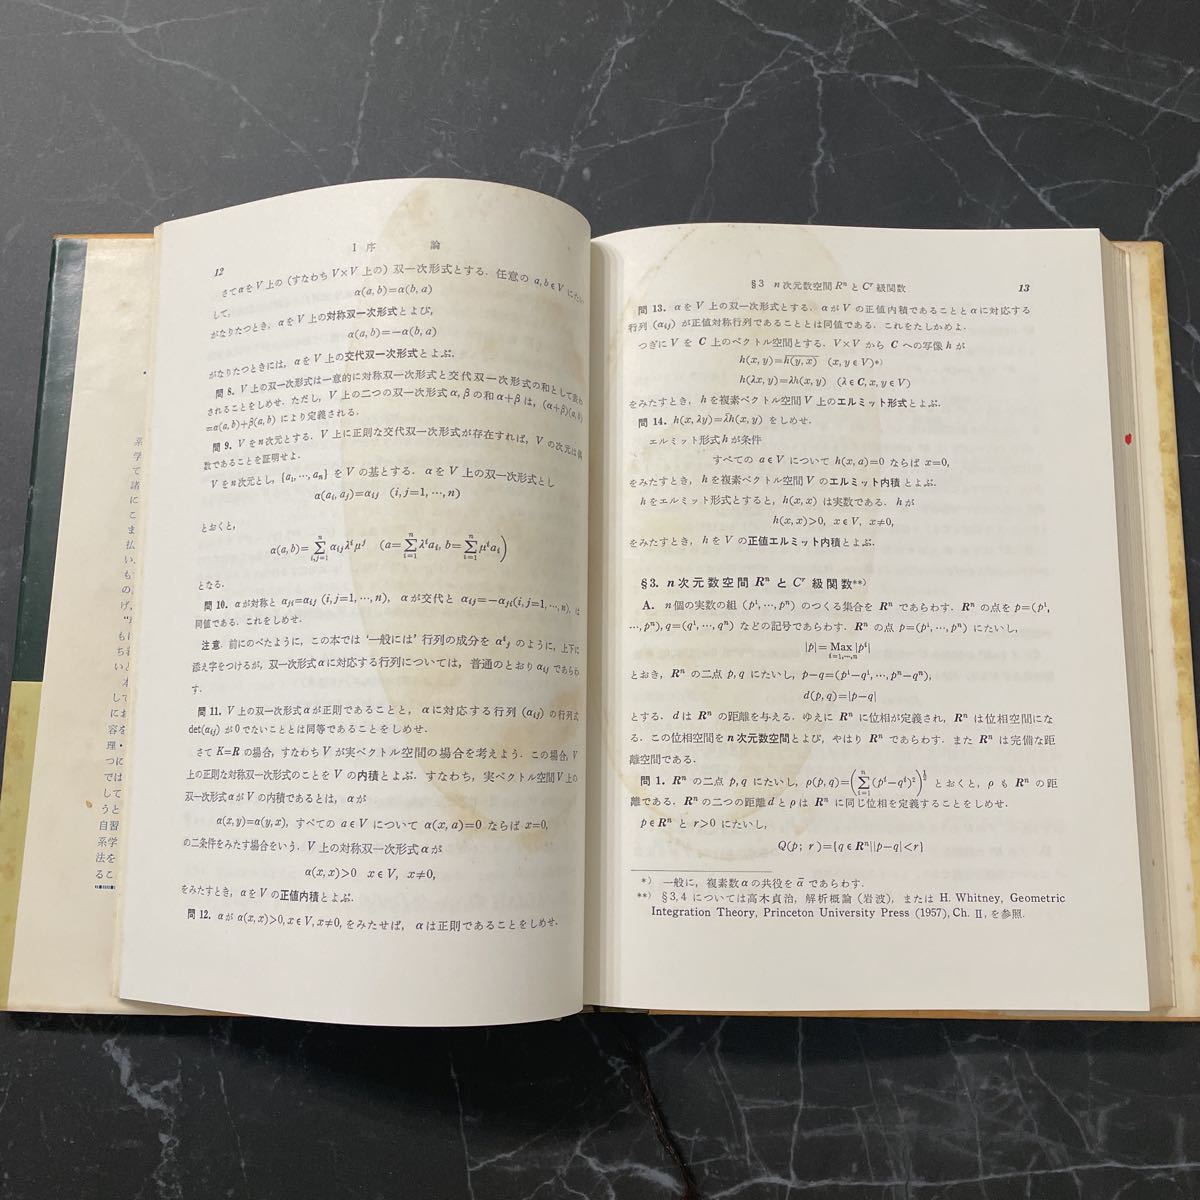 I 序 論
12
さてαを V 上の (すなわち V×V 上の) 双一次形式とする. 任意の a, b∈V にたい
して,
α(a, b)=α(b, a)
がなりたつとき, αを V 上の対称双一次形式とよび,
α(a, b)=−α(b, a)
がなりたつときには, αを V 上の交代双一次形式とよぶ.
問 8. V 上の双一次形式は一意的に対称双一次形式と交代双一次形式の和として表わ
されることをしめせ. ただし, V 上の二つの双一次形式 α, β の和 α+β は, (α+β)(a, b)
=α(a, b)+β(a, b) により定義される.
問 9. V を n 次元とする. V 上に正則な交代双一次形式が存在すれば, V の次元は偶
数であることを証明せよ.
V を n 次元とし, {a₁, ⋯, aₙ} を V の基とする. αを V 上の双一次形式とし
α(aᵢ, aⱼ)=αᵢⱼ (i, j=1, ⋯, n)
とおくと,
α(a, b)=∑ⁿᵢ,ⱼ₌₁ αᵢⱼλⁱμʲ (a=∑ⁿᵢ₌₁ λⁱaᵢ, b=∑ⁿᵢ₌₁ μⁱaᵢ)
となる.
問 10. αが対称と αⱼᵢ=αᵢⱼ (i, j=1, ⋯, n), αが交代と αᵢⱼ=−αⱼᵢ(i, j=1, ⋯, n), は
同値である. これをしめせ.
注意. 前にのべたように, この本では ‘一般には’ 行列の成分を αⁱⱼ のように, 上下に
添え字をつけるが, 双一次形式αに対応する行列については, 普通のとおり αᵢⱼ であらわ
す.
問 11. V 上の双一次形式αが正則であることと, αに対応する行列 (αᵢⱼ) の行列式
det(αᵢⱼ) が 0 でないこととは同等であることをしめせ.
さて K=R の場合, すなわち V が実ベクトル空間の場合を考えよう. この場合, V
上の正則な対称双一次形式のことを V の内積とよぶ. すなわち, 実ベクトル空間 V 上の
双一次形式αが V の内積であるとは, αが
α(x, y)=α(y, x), すべての a∈V について α(x, a)=0 ならば x=0,
の二条件をみたす場合をいう. V 上の対称双一次形式αが
α(x, x)>0 x∈V, x≠0,
をみたすとき, αを V の正値内積とよぶ.
問 12. αが α(x, x)>0, x∈V, x≠0, をみたせば, αは正則であることをしめせ.
§3 n 次元数空間 Rⁿ と Cʳ 級関数 13
問 13. αを V 上の双一次形式とする. αが V の正値内積であることとαに対応する
行列 (αᵢⱼ) が正値対称行列であることとは同値である. これをたしかめよ.
つぎに V を C 上のベクトル空間とする. V×V から C への写像 h が
h(x, y)=h̅(̅y̅,̅ ̅x̅)̅ (x, y∈V)*)
h(λx, y)=λh(x, y) (λ∈C, x, y∈V)
をみたすとき, h を複素ベクトル空間 V 上のエルミット形式とよぶ.
問 14. h(x, λy)=λ̄h(x, y) をしめせ.
エルミット形式 h が条件
すべての a∈V について h(x, a)=0 ならば x=0,
をみたすとき, h を複素ベクトル空間 V のエルミット内積とよぶ.
h をエルミット形式とすると, h(x, x) は実数である. h が
h(x, x)>0, x∈V, x≠0,
をみたすとき, h を V の正値エルミット内積とよぶ.
§3. n 次元数空間 Rⁿ と Cʳ 級関数**)
A. n 個の実数の組 (p¹, ⋯, pⁿ) のつくる集合を Rⁿ であらわす. Rⁿ の点を p=(p¹,
⋯, pⁿ), q=(q¹, ⋯, qⁿ) などの記号であらわす. Rⁿ の点 p=(p¹, ⋯, pⁿ) にたいし,
|p|=Max |pⁱ|
i=1,⋯,n
とおき, Rⁿ の二点 p, q にたいし, p−q=(p¹−q¹, ⋯, pⁿ−qⁿ),
d(p, q)=|p−q|
とする. d は Rⁿ の距離を与える. ゆえに Rⁿ に位相が定義され, Rⁿ は位相空間にな
る. この位相空間を n 次元数空間とよび, やはり Rⁿ であらわす. また Rⁿ は完備な距
離空間である.
問 1. Rⁿ の二点 p, q にたいし, ρ(p, q)=(∑ⁿᵢ₌₁ (pⁱ−qⁱ)²)^½ とおくと, ρ も Rⁿ の距
離である. Rⁿ の二つの距離 d と ρ は Rⁿ に同じ位相を定義することをしめせ.
p∈Rⁿ と r>0 にたいし,
Q(p; r)={q∈Rⁿ||p−q|<r}
*) 一般に, 複素数αの共役を ᾱ であらわす.
**) §3,4 については高木貞治, 解析概論 (岩波), または H. Whitney, Geometric
Integration Theory, Princeton University Press (1957), Ch. II, を参照.